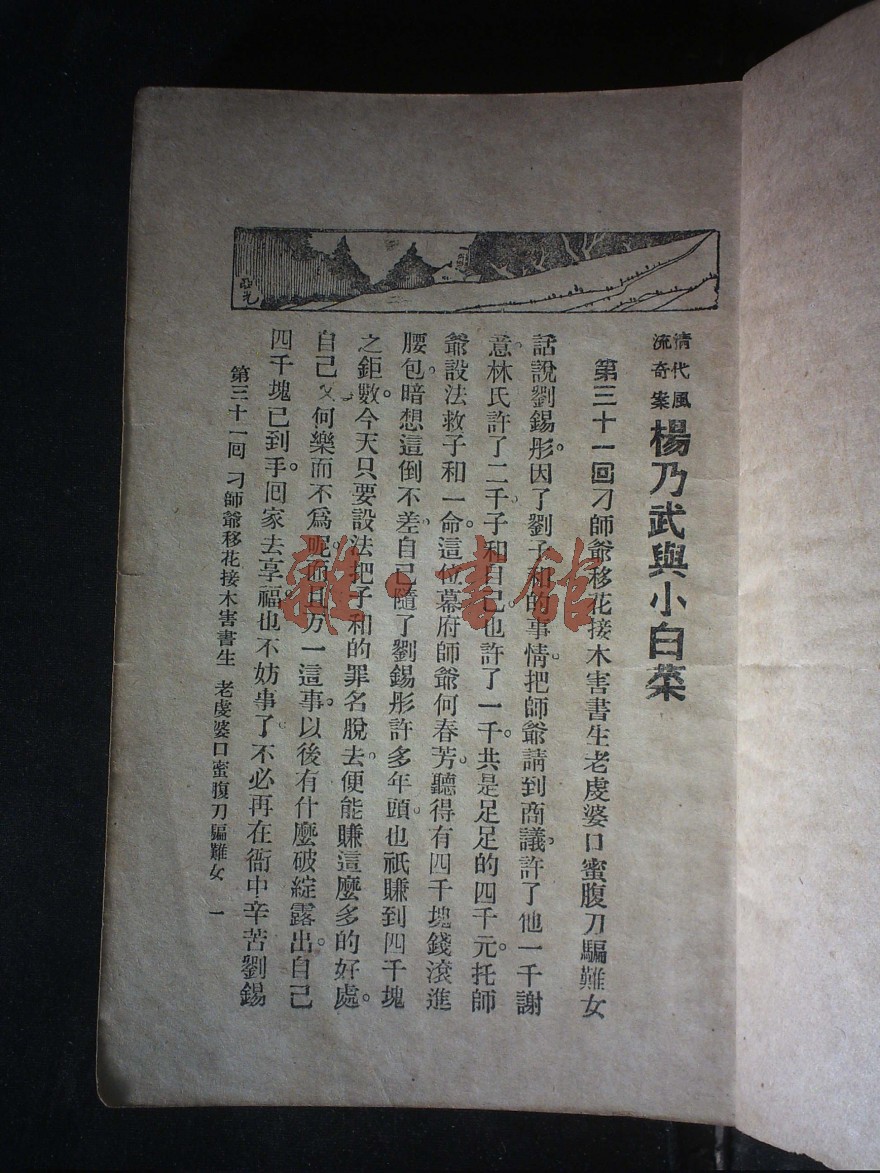 清代風流奇案
楊乃武與小白菜
第三十一回刁師爺移花接木害書生老虔婆口蜜腹刀騙難女
話說劉錫彤因了劉子和的事情。把師爺請到商議。許了他一千謝
意。林氏許了二千。子和自己也許了一千。共是足足的四千元。托師
爺設法救子和一命。這位幕府師爺何春芳。聽得有四千塊錢滾進
腰包。暗想這倒不差。自己隨了劉錫彤許多年頭。也祇賺到四千塊
之鉅數。今天只要設法把子和的罪名脫去。便能賺這麼多的好處。
自己又何樂而不爲呢。而且万一這事。以後有什麼破綻露出。自己
四千塊已到手。囘家去享福也不妨事了。不必再在衙中辛苦劉錫
第三十一囘 刁師爺移花接木害書生 老虔婆口蜜腹刀騙難女 一
雜·書館